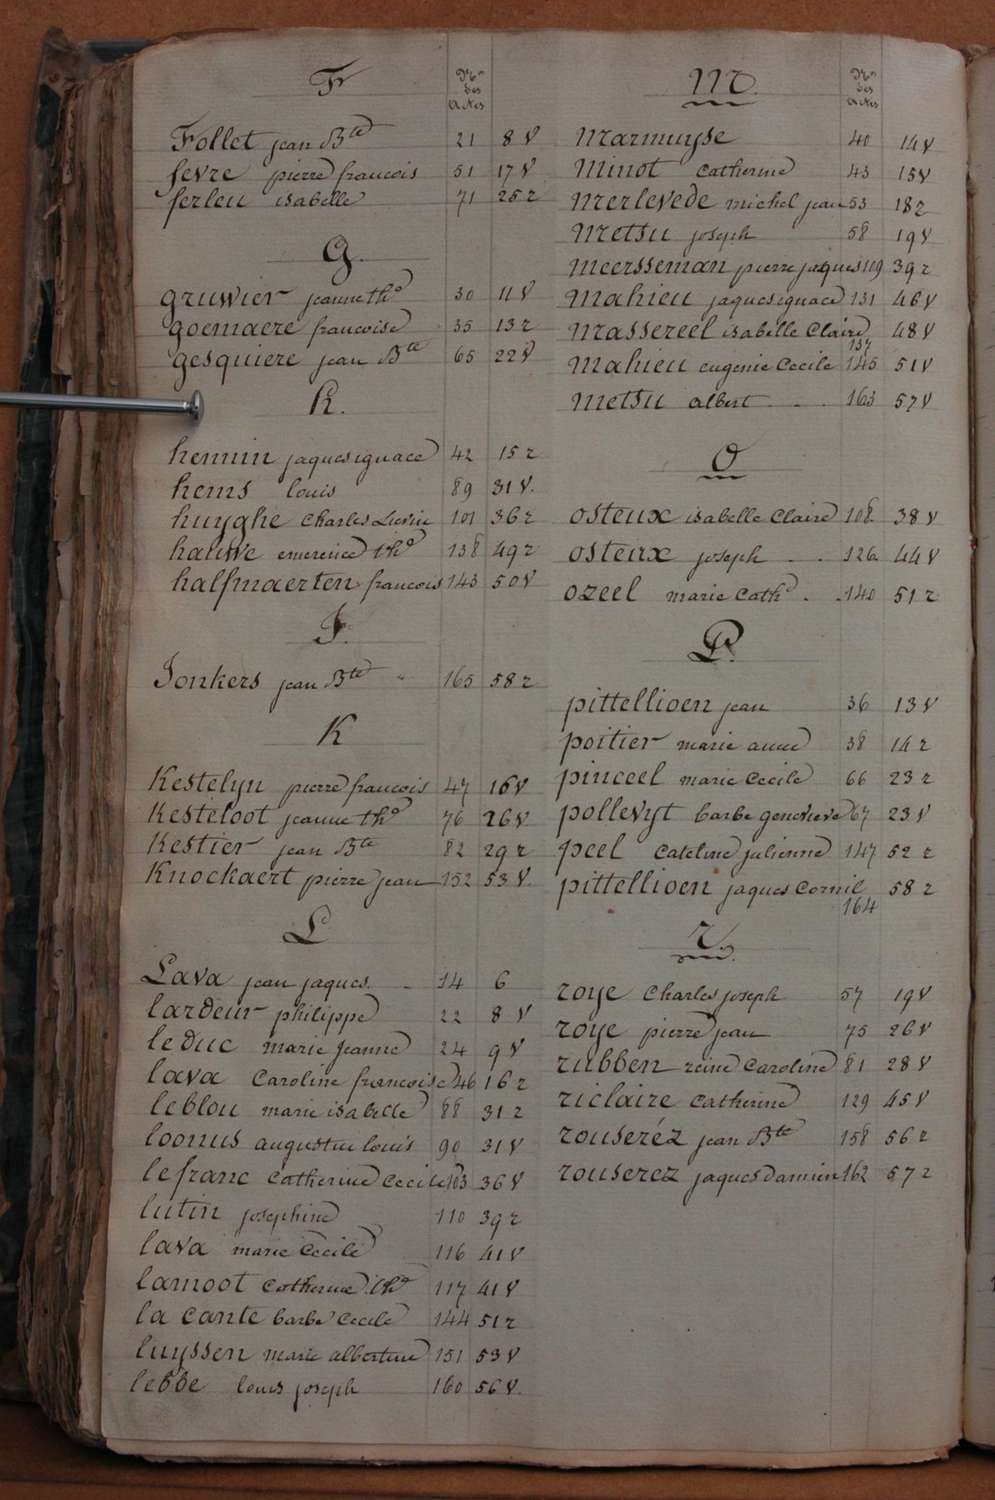 F
Nos
des
actes
Follet jean Bte 21 8 V
fevre pierre francois 51 17 V
ferleu isabelle 71 25 r
G.
gruwier jeanne tho 30 11 V
goemaere francoise 35 13 r
gesquiere jean Bte 65 22 V
h.
hennin jaques ignace 42 15 r
hems louis 89 31 V.
huyghe Charles Livin 101 36 r
hauwe emerence tho 138 49 r
halfmaerten francois 143 50 V
J.
Jonkers jean Bte 165 58 r
K
Kestelyn pierre francois 47 16 V
Kesteloot jeanne tho 76 26 V
Kestier jean Bte 82 29 r
Knockaert pierre jean 152 53 V.
L
Lava jean jaques. 14 6
lardeur philippe 22 8 V
leduc marie jeanne 24 9 V
lava Caroline francoise 46 16 r
leblou marie isabelle 88 31 r
loonus augustin louis 90 31 V
lefranc Catherine Cecile 103 36 V
lutin josephine 110 39 r
lava marie Cecile 116 41 V
lamoot Catherine tho 117 41 V
la cante barbe Cecile 144 51 r
luyssen marie albertine 151 53 V
lebbe louis joseph 160 56 V.
M.
Nos
des
actes
marmuyse 40 14 V
minot Catherine 43 15 V
merlevede michel jean 53 18 r
metsu joseph 58 19 V
meersseman pierre jaques 109 39 r
mahieu jaques ignace 131 46 V
massereel isabelle Claire 137 48 V
mahieu eugenie Cecile 145 51 V
metsu albert 163 57 V
O
osteux isabelle Claire 108. 38 V
osteux joseph 126 44 V
ozeel marie Cath. 140 51 r
P.
pittellioen jean 36 13 V
poitier marie anne 38 14 r
pinceel marie Cecile 66 23 r
pollevyt barbe genevieve 67 23 V
peel Cateline julienne 147 52 r
pittellioen jaques Cornil 164 58 r
r.
roye Charles joseph 57 19 V
roye pierre jean 75 26 V
rubben reine Caroline 81 28 V
riclaire Catherine 129 45 V
rouseréz jean Bte 158 56 r
rouserez jaques Damien 162 57 r